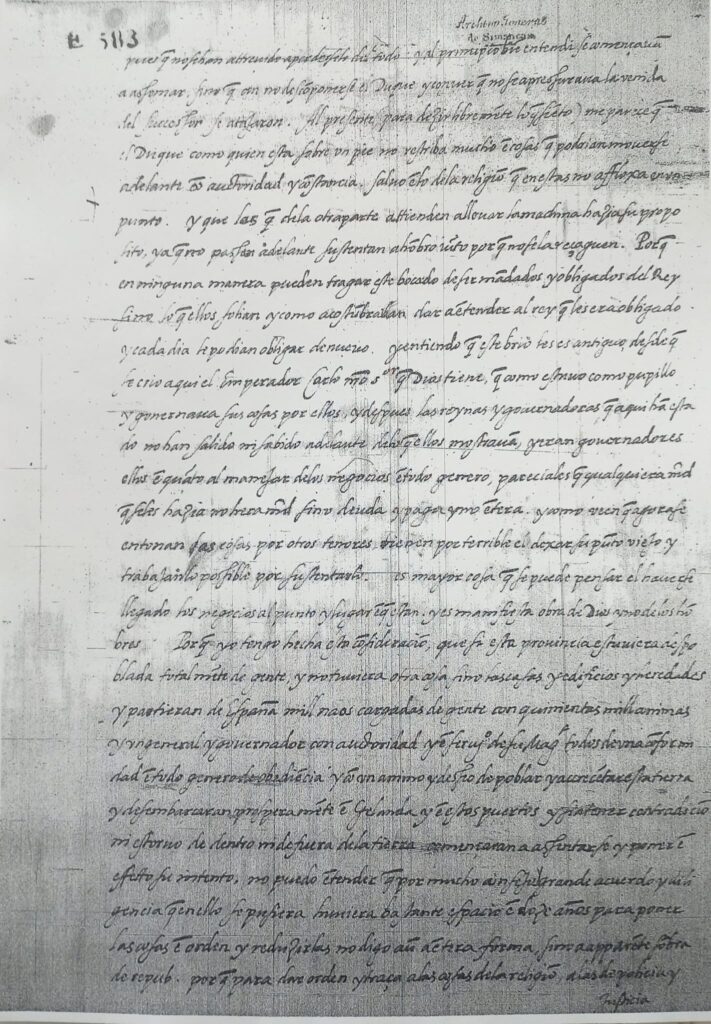 E 5113
Archivo General
de Simancas
pues q̃ no se han atrevido apardesito del todo y al principio bie entendi se començavã
a assomar, sino q̃ con no descõponerse el Duque y con ver q̃ no se apressurava la venida
del successor se atajaron. Al presente (para dezir libremẽte lo q̃ siẽto) me pareçe q̃
el Duque como quien esta sobre un pie no restriba mucho ẽ cosas q̃ podrian moverse
adelante cõ auctoridad y cõstancia. Salvo ẽ lo dela religiõ q̃ en estas no affloxa en un
punto. y que los q̃ dela otra parte attienden a llevar la madrina hazia su propo
sito, ya q̃ no passan adelante sustentan a hõbro iusto por q̃ no se la reçaguen. Porq̃
en ninguna manera pueden tragar este bocado de ser mãdados y obligados del Rey
sino lo q̃ ellos solian y como acostũbravan dar a entender al rey q̃ les era obligado
y cada dia le podian obligar de nuevo. y entiendo q̃ este brio les es antiguo, desde q̃
se crio aqui el Emperador Carlo nr̃o sor q̃ Dios tiene, q̃ como estuvo como pupillo
y governava sus cosas por ellos, y despues las reynas y governadoras q̃ aqui hã esta
do no han salido ni sabido adelante delo q̃ ellos mostravã, y eran governadores
ellos ẽ quãto al manejar delos negocios ẽ todo genero, pareciales q̃ qualquiera mr̃d
q̃ se les hazia no hera mr̃d sino deuda y paga y no ẽtera. y como veen q̃ agora se
entonan las cosas por otros tenores, tienen por terrible el dexar su pũto viejo y
trabajan lo possible por sustentarlo. es mayor cosa q̃ se puede pensar el haverse
llegado los negocios al punto y lugar ẽ q̃ estan. y es manifiesta obra de Dios y no de los hõ
bres. Porq̃ yo tengo hecha esta cõsideraciõ, que si esta provincia estuviera despo
blada totalmẽte de gente, y no tuviera otra cosa sino las casas y edificios y heredades
y partieran de España mill naos cargadas de gente con quinientas mill animas
y un general y governador con auctoridad y ẽ servicio de su Magd todos de una cõformi
dad ẽ todo genero de obediẽcia y cõ un animo y desseo de poblar y acrecẽtar esta tierra
y desembarcaran prosperamẽte ẽ Gelanda y ẽ estos puertos y sin tener cõtradiciõ
ni estorvo de dentro ni de fuera dela tierra començaran a assentarse y poner ẽ
effetto su intento, no puedo ẽtender q̃ por mucho cõsejo grande acuerdo y dili
gencia q̃ en ello se pusiera huviera bastante espacio ẽ doze años para poner
las cosas ẽ orden y reduzirlas no digo aũ a ẽtera forma, sino a apparẽte sõbra
de repub. porq̃ para dar orden y traça a las cosas dela religiõ, a las de policia y
Justicia